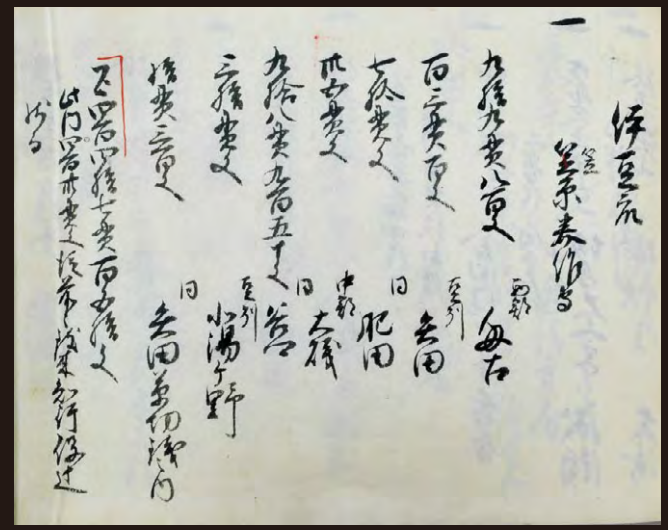 伊豆衆
一 笠原美作守
九拾九貫八百文 西郡
百三貫百文 豆州 矢田
七拾貫文 同 肥田
卅五貫文 中郡 大磯
九拾八貫九百五十文 同
三拾貫文 豆州 小湯ケ野
拾貫三百文 同 矢田 切銭之内
已上四百四拾七貫百五拾文
此内四百卅貫文従前々致来知行役辻